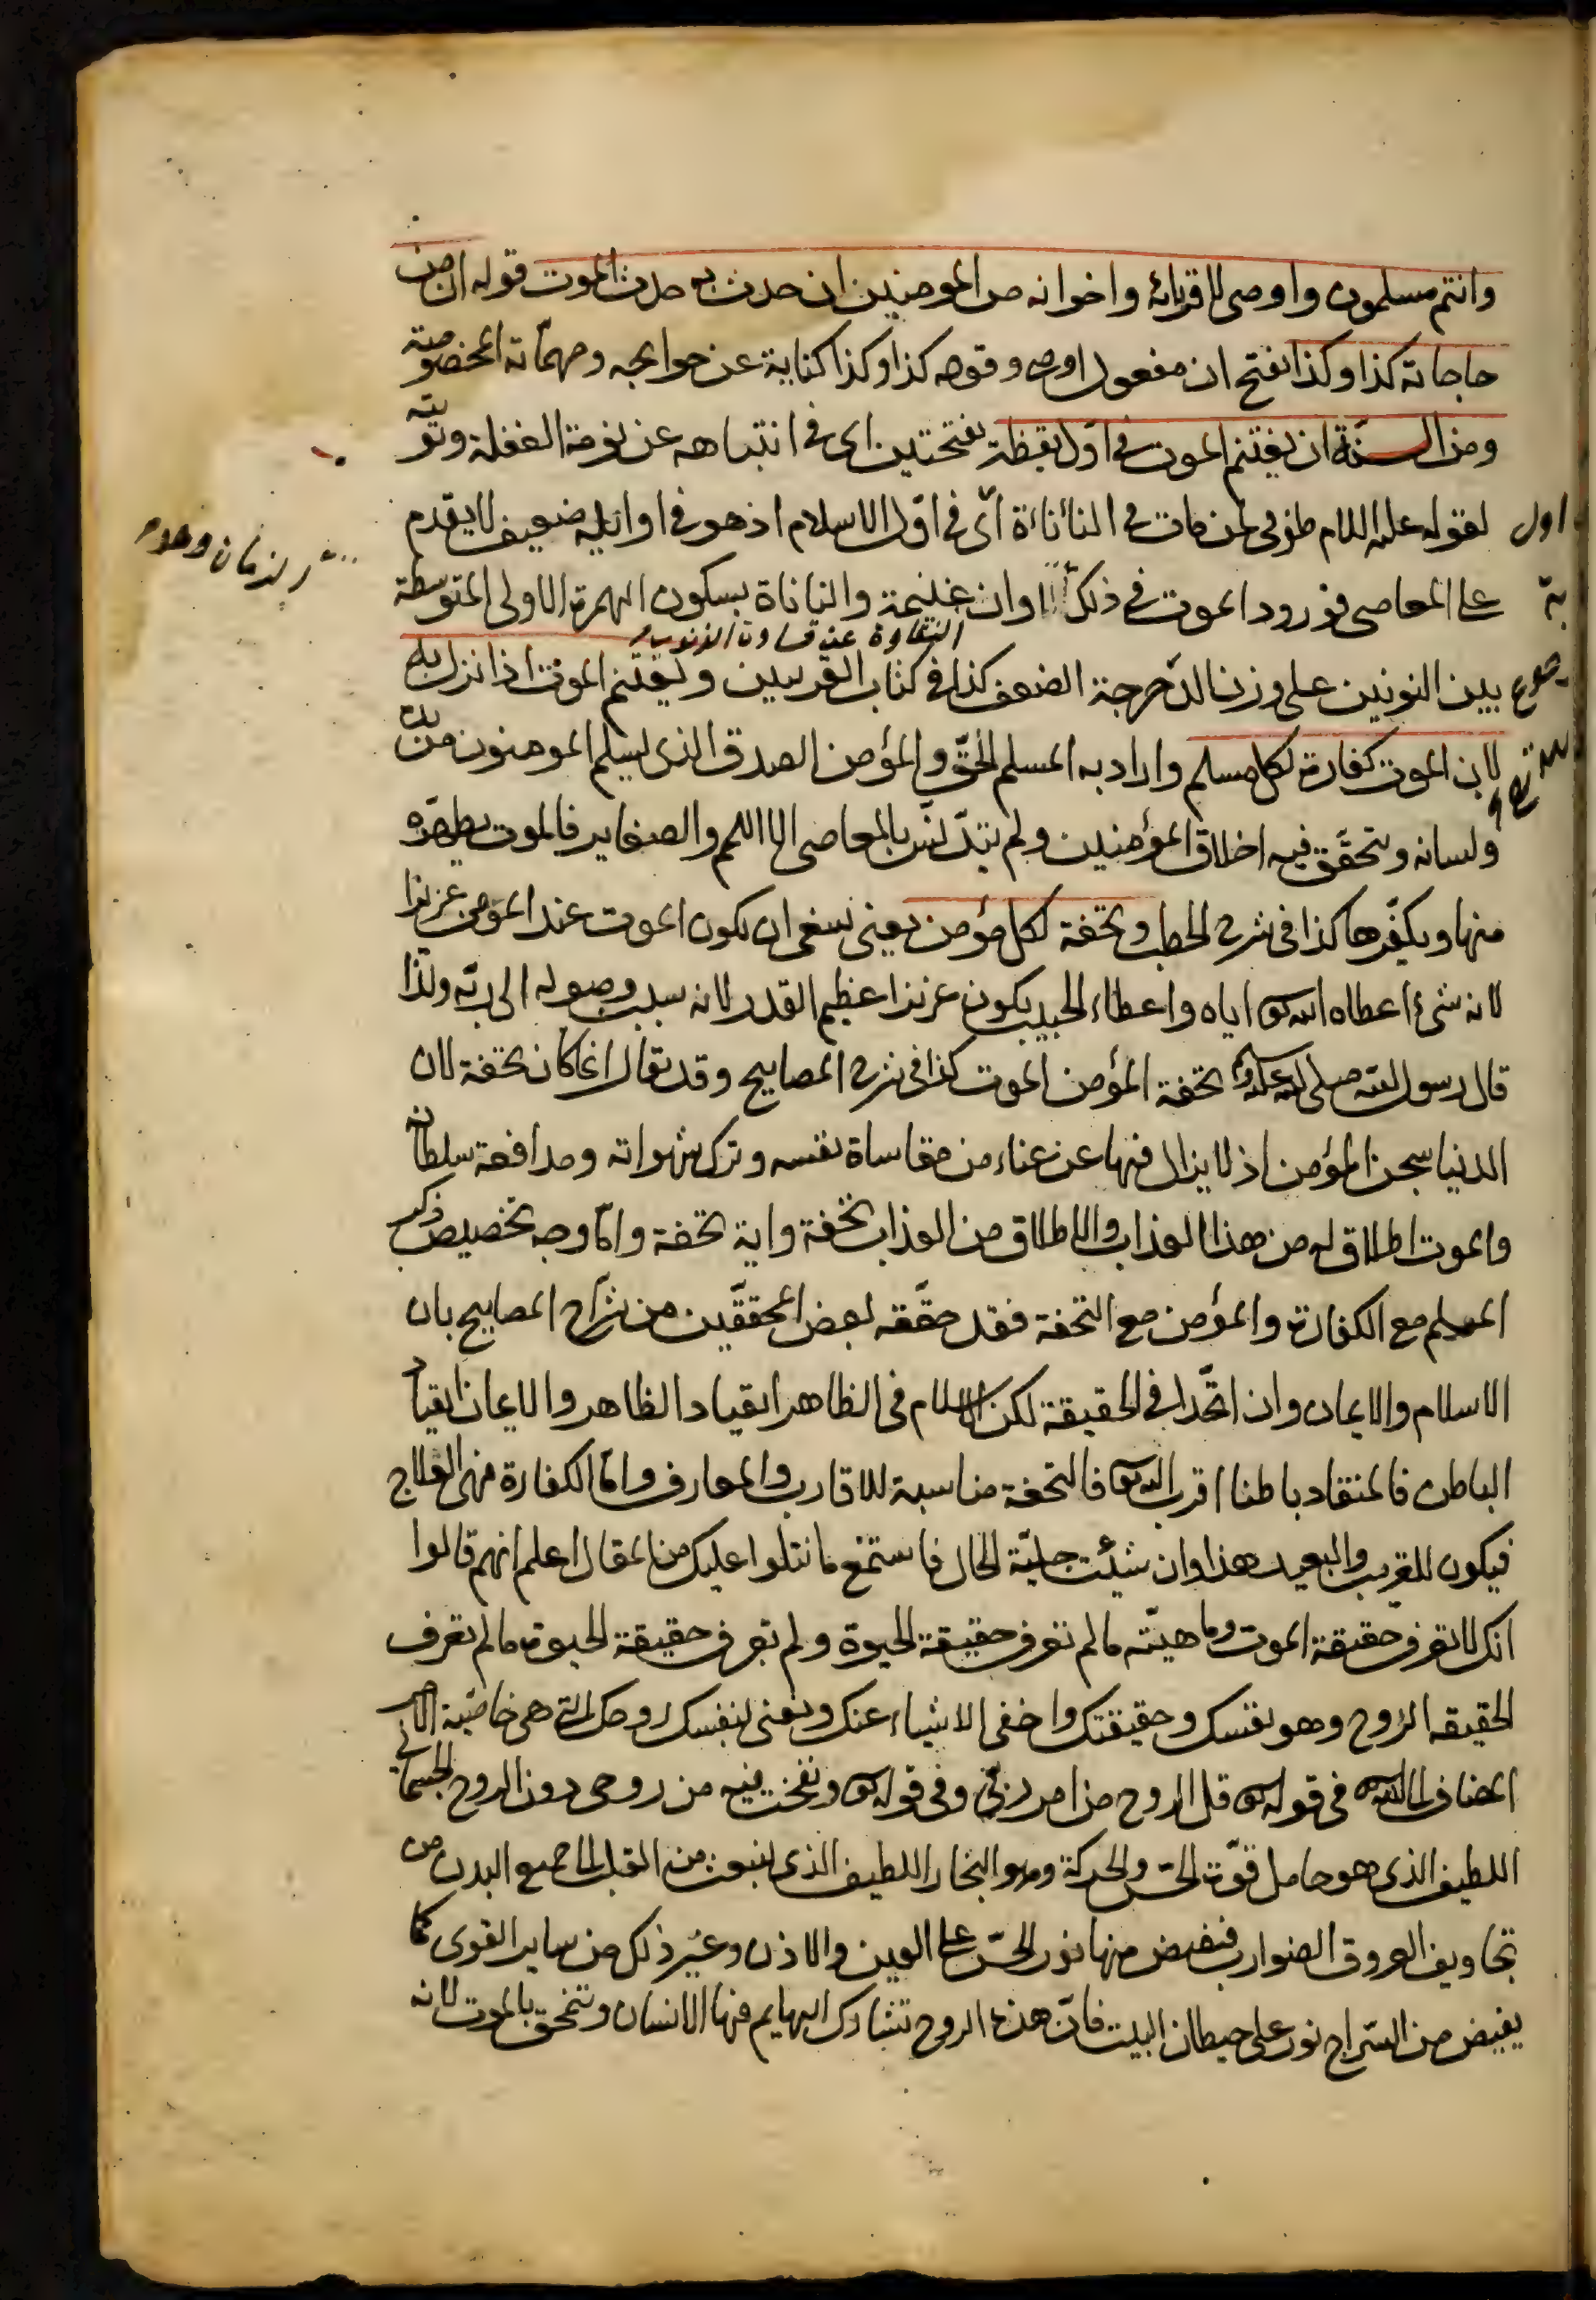 وانتم مسلمون واوصى لاقربائه واخوانه من المومنين ان حدث به حدث الموت قوله ان من
حاجاته كذا وكذا بفتح ان مفعول اوصى وقوله كذا وكذا كناية عن حوايجه ومهمّاته المخصوصة
ومن السنّة ان يغتنم الموت فى اوّل يقظة بفتحتين اى فى انتباهه عن نومة الغفلة
لقوله عليه السلام طوبى لمن مات فى النأنأة اى فى اوّل الاسلام اذ هو فى اوايله ضعيف لا يقدم
على المعاصى فورود الموت فى ذلك الاوان غنيمة والنأنأة بسكون الهمزة الاولى المتوسطة
بين النونين على وزن الدّحرجة الضعف كذا فى كتاب الغريبين ويغتنم الموت اذا نزل به
لان الموت كفارة لكل مسلم واراد به المسلم الحقّ والمؤمن الصدق الذى يسلم المومنون من يده
ولسانه ويتحقّق فيه اخلاق المؤمنين ولم يتدّلسّ بالمعاصى الا اللمم والصغاير فالموت يطهّره
منها ويكفّرها كذا فى شرح الخطب وتحفة لكل مؤمن يعنى ينبغى ان يكون الموت عند المؤمن عزيزا
لانه شئ اعطاه الله تعالى اياه واعطاء الحبيب يكون عزيزا عظيم القدر لانه سبب وصوله الى ربّه ولذا
قال رسول الله صلى الله عليه وسلم تحفة المؤمن الموت كذا فى شرح المصابيح وقد يقال انما كان تحفة لان
الدنيا سجن المؤمن اذ لا يزال فيها عن عناء من مقاساة نفسه وترك شهواته ومدافعة سلطانه
والموت اطلاق له من هذا العذاب والاطلاق من العذاب تحفة واية تحفة وامّا وجه تخصيص ذكر
المسلم مع الكفارة والمؤمن مع التحفة فقد حقّقه بعض المحقّقين من شرّاح المصابيح بان
الاسلام والايمان وان اتّحدا فى الحقيقة لكن الاسلام فى الظاهر انقياد الظاهر والايمان انقياد
الباطن فالمنقاد باطنا اقرب الى الله تعالى فالتحفة مناسبة للاقارب والمعارف وامّا الكفارة فهى العلاج
فيكون للقريب والبعيد هذا وان شئت جليّة الحال فاستمع ما نتلوا عليك من المقال اعلم انهم قالوا
انك لا تعرف حقيقة الموت وماهيّته ما لم تعرف حقيقة الحيوة ولم تعرف حقيقة الحيوة ما لم تعرف
الحقيقه الروح وهو نفسك وحقيقتك واخفى الاشياء عنك ونعنى بنفسك روحك التى هى خاصّية
المضاف الى الله تعالى فى قوله تعالى قل الروح من امر ربّى وفى قوله تعالى ونفخت فيه من روحى دون الروح الجسمانى
اللطيف الذى هو حامل قوّت الحسّ والحركة وهو البخار اللطيف الذى ينبعث من القلب الى جميع البدن من
تجاويف العروق الضوارب فيفيض منها نور الحسّ على العين والاذن وغير ذلك من ساير القوى كما
يفيض من السّراج نور على حيطان البيت فانّ هذه الروح تتشارك البهايم فيها الانسان وتنمحق بالموت لانه